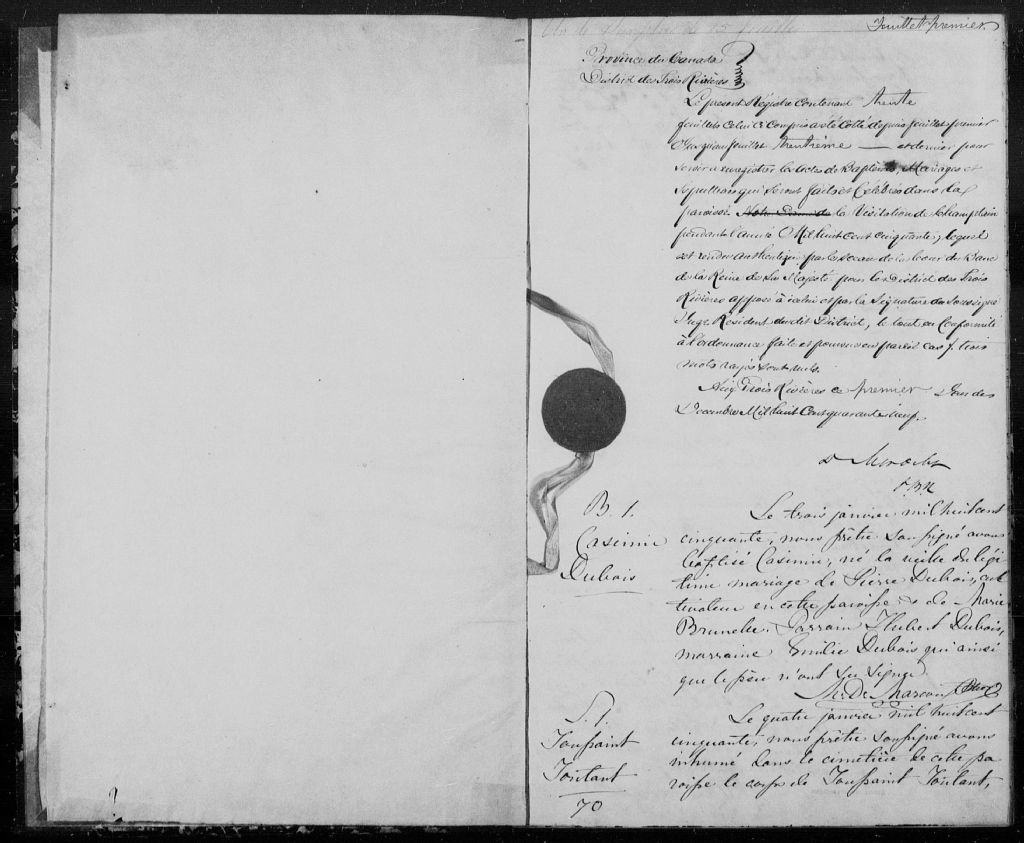 Feuillet premier.
Province du Canada
District des Trois Rivières
Le present Régistre contenant trente
feuillets celui ci compris a été cotté depuis feuillet premier
jusqu'au feuillet trentième — et dernier pour
servir a enregistrer les Actes de Baptêmes, Mariages et
Sepultures qui seront faits et Célébrés dans la
paroisse Notre Dame de la Visitation de Champlain
pendant l'année Mil huit cent cinquante, lequel
est rendu authentique par le sceau de la Cour du Banc
de la Reine de Sa Majesté pour le District des Trois
Rivières apposé à icelui et par la Signature du Soussigné
Juge Resident dudit District, le tout en Conformité
à l'ordonnance faite et pourvue en pareil cas. trois
mots rayés sont nuls.
Aux Trois Rivières ce premier Jour de
Decembre Mil huit Cent quarante neuf.
B. 1.
Casimir
Dubois
Le trois janvier mil huit cent
cinquante, nous prêtre soussigné avons
baptisé Casimir, né la veille du légi
time mariage de Pierre Dubois, cul
tivateur en cette paroisse & de Marie
Brunelle. Parrain Hubert Dubois,
marraine Emilie Dubois qui ainsi
que le père n'ont su signer.
Mrs. De Marcoux Ptre
S. 1.
Toussaint
Toutant
70
Le quatre janvier mil huit cent
cinquante, nous prêtre soussigné avons
inhumé dans le cimetière de cette pa
roisse le corps de Toussaint Toutant,